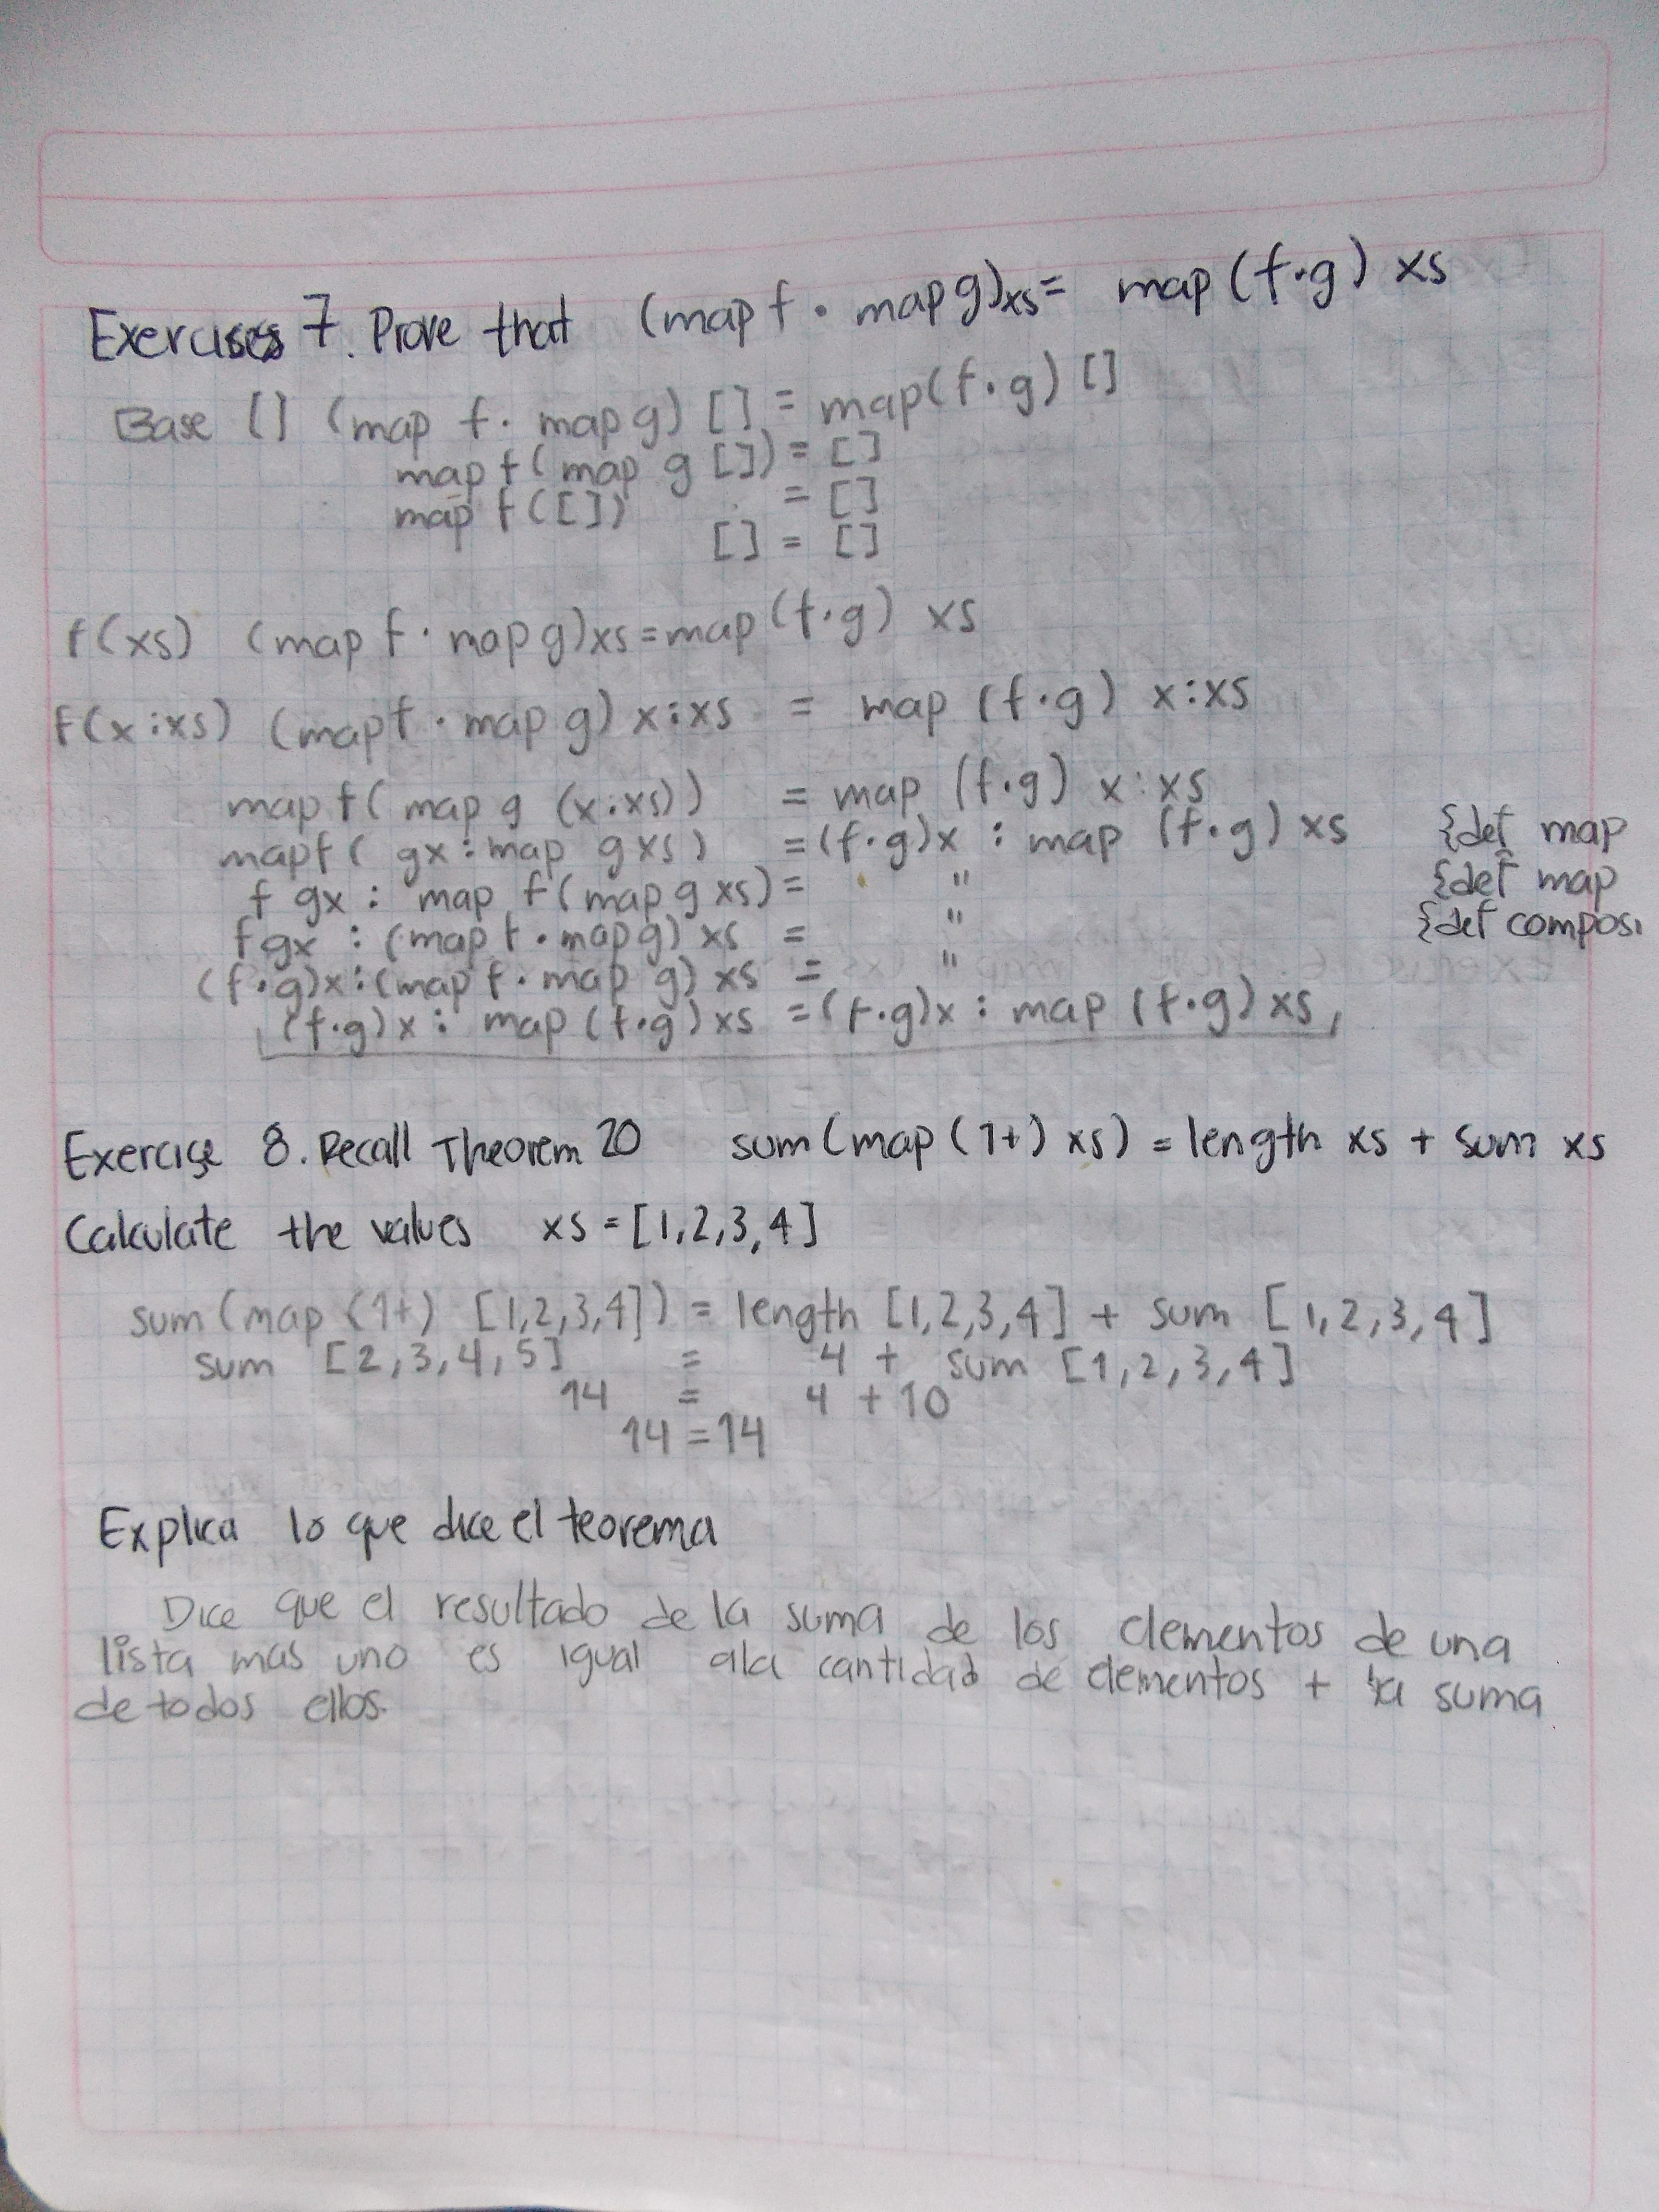 Exercises 7. Prove that (map f . map g)xs = map (f.g) xs
Base [] (map f . map g) [] = map(f.g) []
map f (map g []) = []
map f ([]) = []
[] = []
f(xs) (map f . map g)xs = map (f.g) xs
f(x:xs) (map f . map g) x:xs = map (f.g) x:xs
map f( map g (x:xs)) = map (f.g) x:xs
map f( gx : map g xs) = (f.g)x : map (f.g) xs {def map
f gx : map f(map g xs) = " {def map
f gx : (map f . map g) xs = " {def composi
(f.g)x:(map f . map g) xs = "
(f.g)x : map (f.g) xs = (f.g)x : map (f.g) xs,
Exercise 8. Recall Theorem 20 sum(map (1+) xs) = length xs + sum xs
Calculate the values xs = [1,2,3,4]
sum(map (1+) [1,2,3,4]) = length [1,2,3,4] + sum [1,2,3,4]
sum [2,3,4,5] = 4 + sum [1,2,3,4]
14 = 4 + 10
14 = 14
Explica lo que dice el teorema
Dice que el resultado de la suma de los elementos de una
lista mas uno es igual ala cantidad de elementos + la suma
de todos ellos.